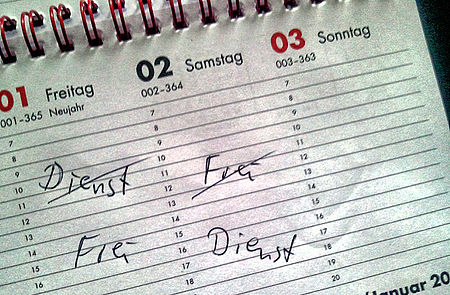 01 Freitag
001-365 Neujahr
02 Samstag
002-364
03 Sonntag
003-363
7
8
9
10
11
12
13
14
15
16
7
8
9
10
11
12
13
14
15
16
17
18
7
8
9
10
11
12
13
14
15
16
17
18
19
20
Dienst
Frei
Frei
Dienst
Januar 20